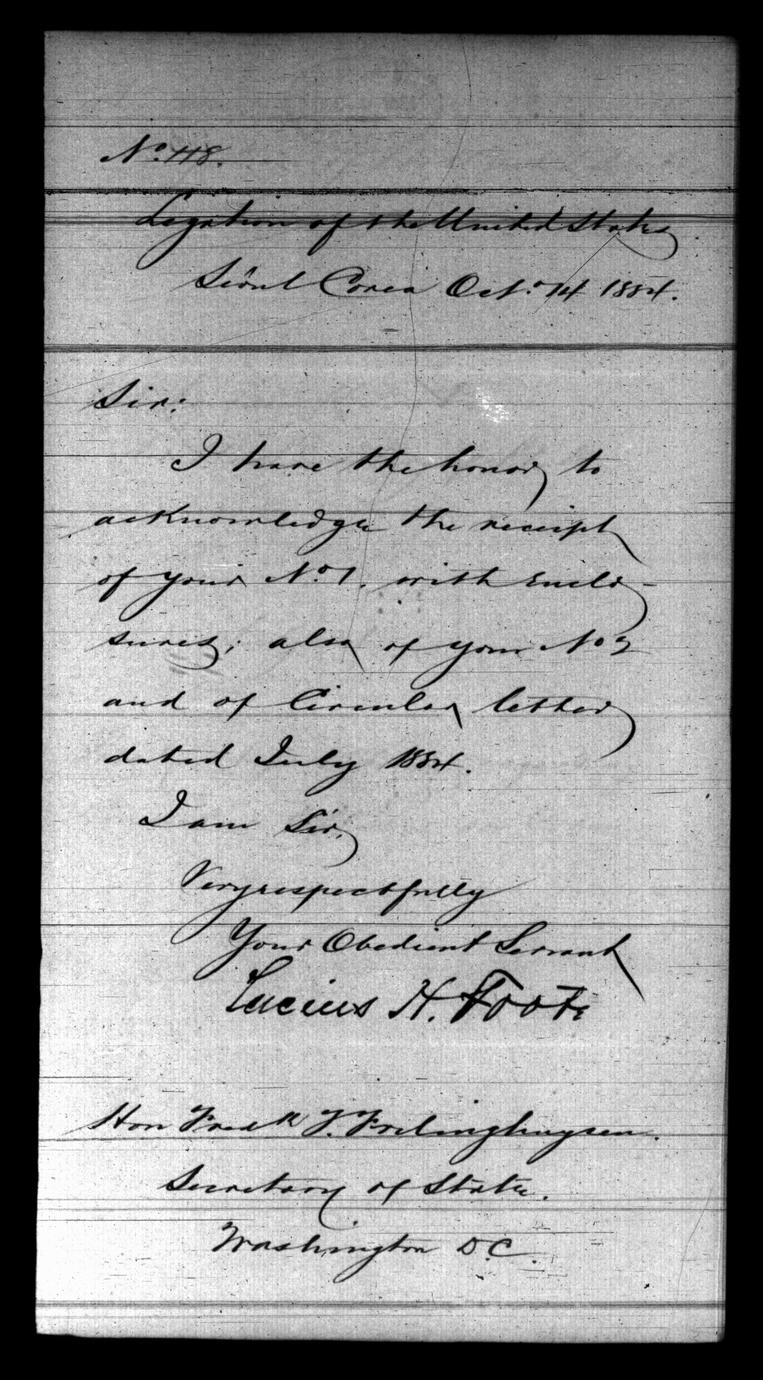 No. 118.
Legation of the United States
Seoul Corea Oct. 14 1884.
Sir:
I have the honor to
acknowledge the receipt
of your No. 1. with Enclo-
sures; also of your No 2
and of Circular letter
dated July 1884.
I am Sir,
Very respectfully
Your Obedient Servant
Lucius H. Foote
Hon Fredk T. Frelinghuysen.
Secretary of State.
Washington D.C.